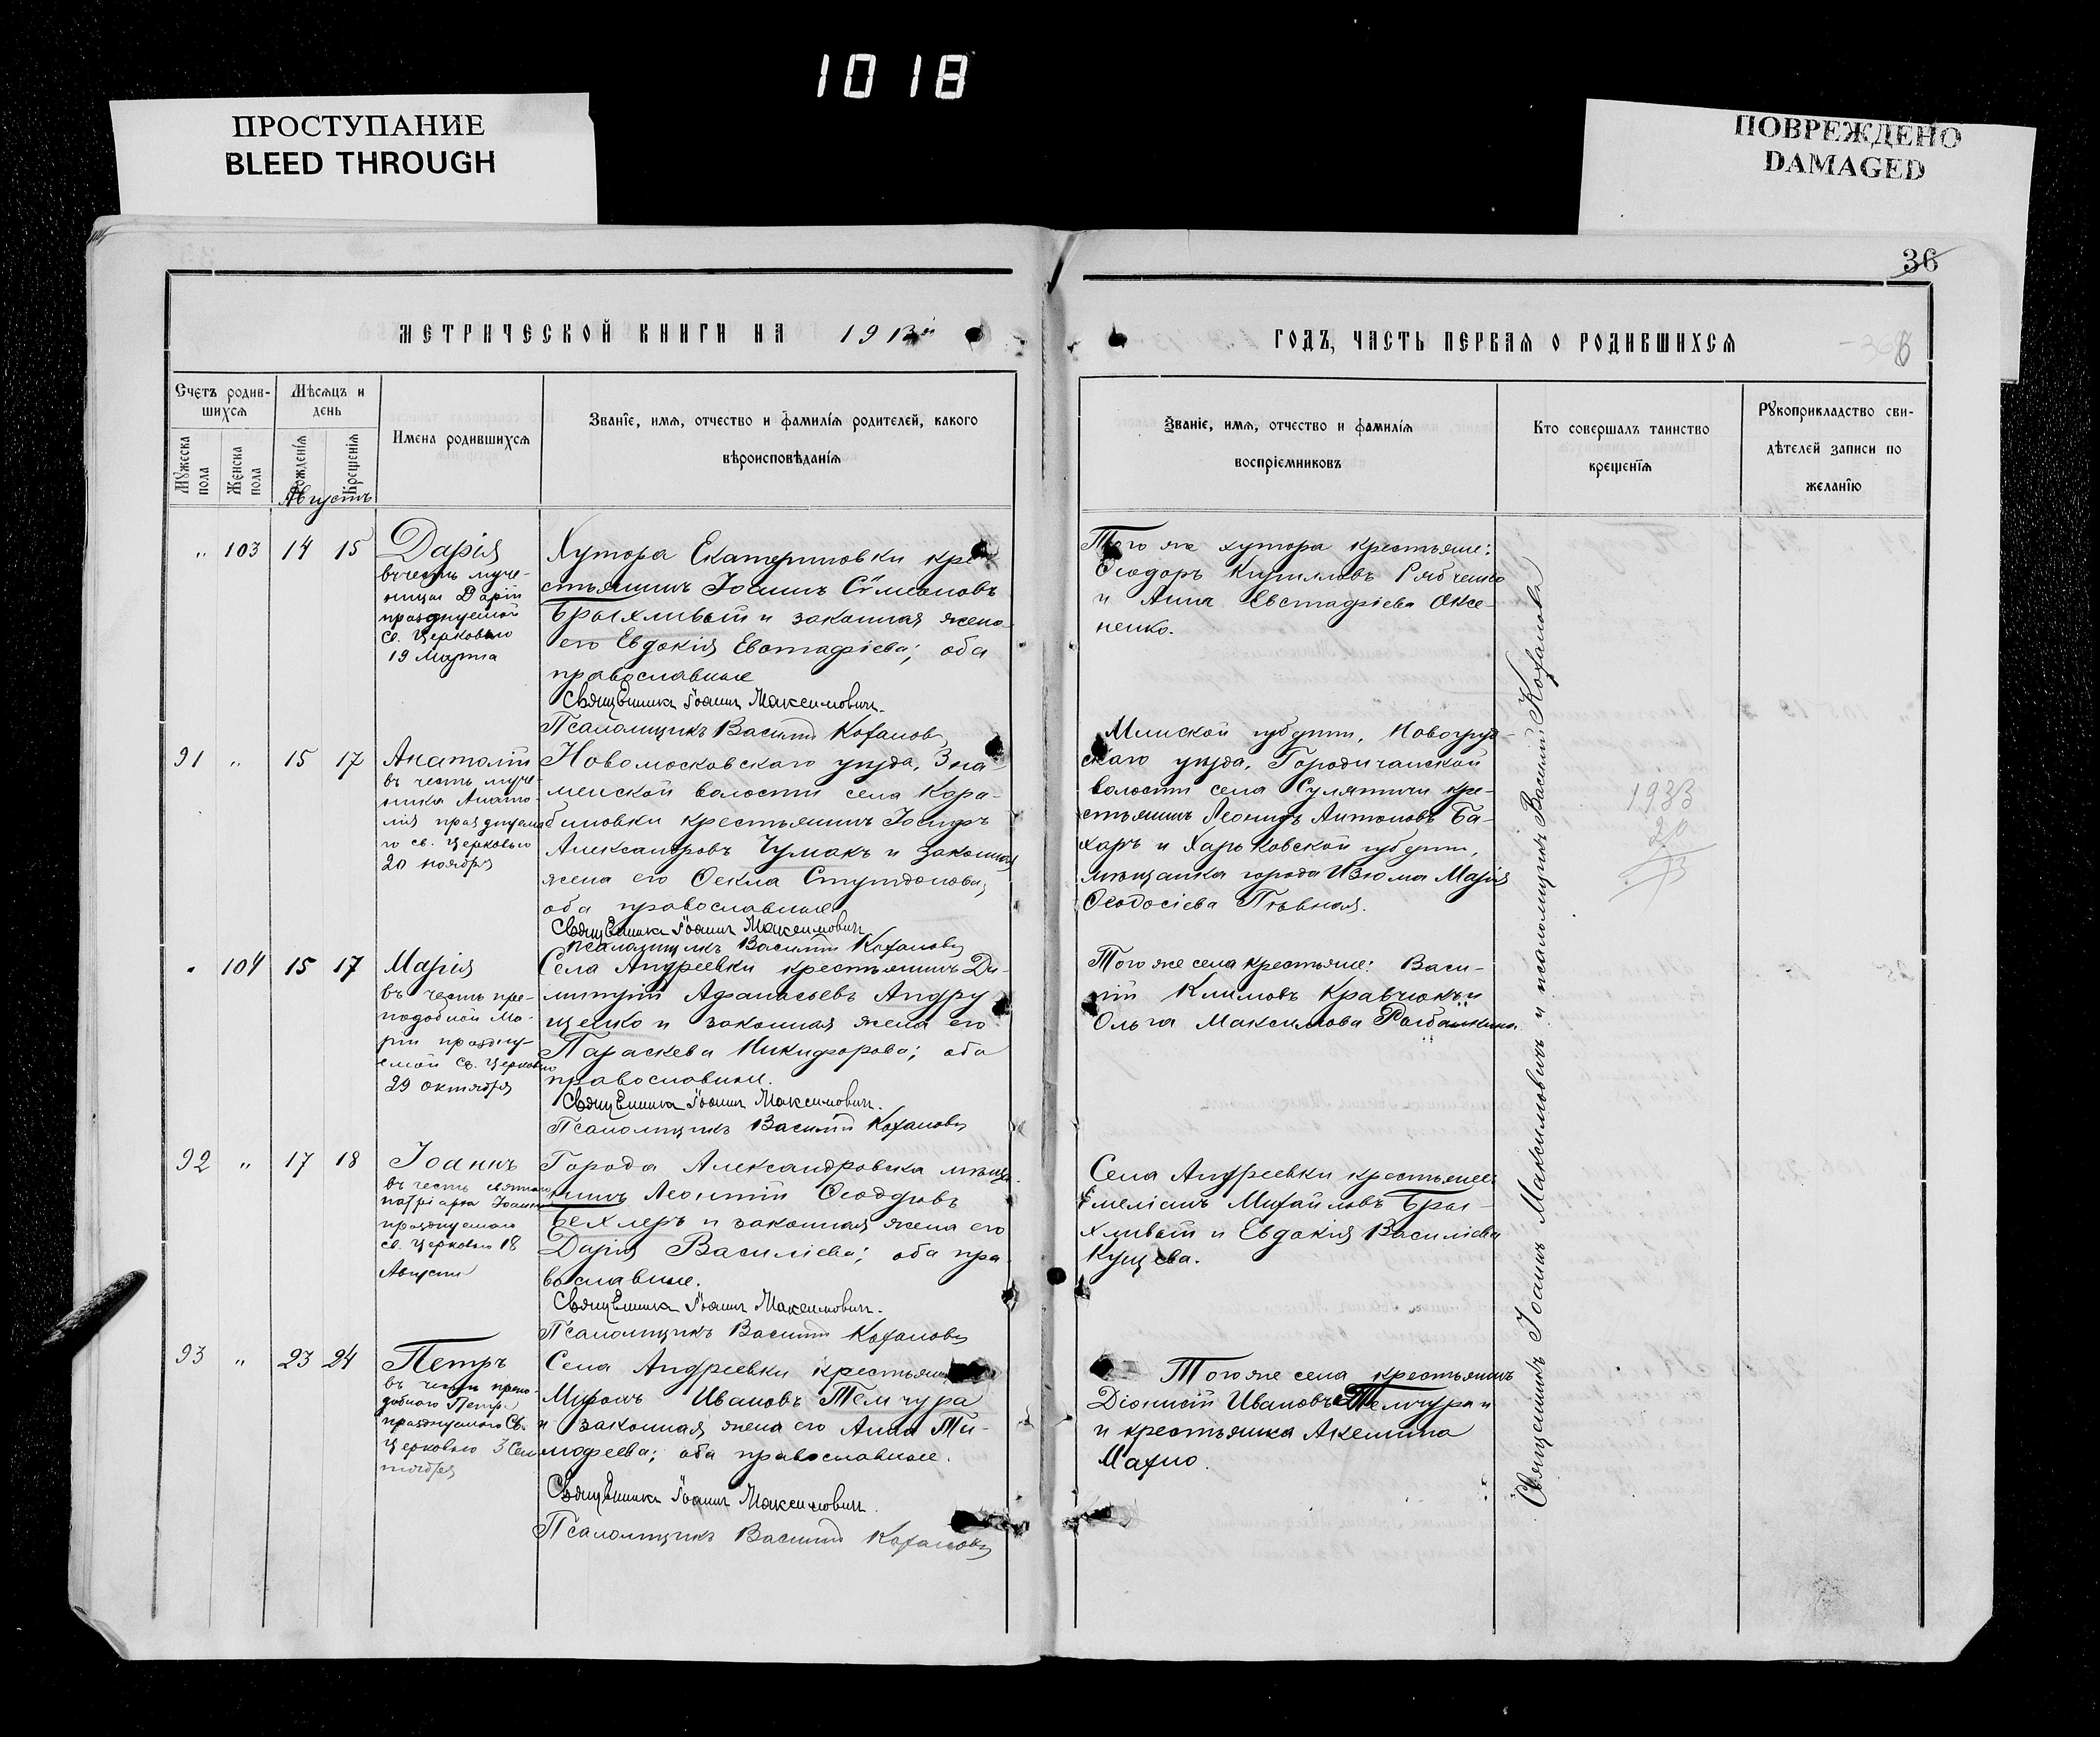 1018
ПРОСТУПАНИЕ
BLEED THROUGH
ПОВРЕЖДЕНО
DAMAGED
36
МЕТРИЧЕСКОЙ КНИГИ НА 1913й
ГОДЪ, ЧАСТЬ ПЕРВАЯ О РОДИВШИХСЯ
Счетъ родив-
шихся
Мѣсяцъ и
день
Мужеска
пола
Женска
пола
Рожденія
Крещенія
Имена родившихся
Званіе, имя, отчество и фамилія родителей, какого
вѣроисповѣданія
Званіе, имя, отчество и фамилія
воспріемниковъ
Кто совершалъ таинство
крещенія
Рукоприкладство сви-
дѣтелей записи по
желанію
Августъ
„ 103 14 15
Дарія
въ честь муче-
ницы Даріи
празднуемой
св. Церковью
19 Марта
Хутора Екатериновки кре
стьянинъ Іоаннъ Сѵмеоновъ
Брыхливый и законная жена
его Евдокія Евстафіева; оба
православные
Священникъ Іоаннъ Максимовичъ.
Псаломщикъ Василій Кохановъ
Того же хутора крестьяне:
Ѳеодоръ Кирилловъ Рябченко
и Анна Евстафіева Оксе-
ненко.
91 „ 15 17
Анатолій
въ честь муче-
ника Анато-
лія празднуема
го св. Церковью
20 ноября
Новомосковскаго уѣзда, Зна-
менской волости села Кара-
биновки крестьянинъ Іосифъ
Александровъ Чумакъ и законная
жена его Ѳекла Спиридонова;
оба православные.
Священникъ Іоаннъ Максимовичъ
Псаломщикъ Василій Кохановъ
Минской губерніи, Новогруд-
скаго уѣзда, Городичанской
волости села Сулятичи кре-
стьянинъ Леонидъ Антоновъ Ба-
харъ и Харьковской губерніи,
мѣщанка города Изюма Марія
Ѳеодосіева Пѣвная.
1933
20
„ 104 15 17
Марія
въ честь пре-
подобной Ма-
ріи праздну-
емой св. Церковью
29 октября
Села Андреевки крестьянинъ Ди-
митрій Афанасьевъ Андру
щенко и законная жена его
Параскева Никифорова; оба
православные.
Священникъ Іоаннъ Максимовичъ.
Псаломщикъ Василій Кохановъ
Того же села крестьяне: Васи-
лій Климовъ Кравчюкъ и
Ольга Максимова
92 „ 17 18
Іоаннъ
въ честь святаго
патріарха Іоанна
празднуемаго
св. Церковью 18
Августа
Города Александровска мѣща-
нинъ Леонтій Ѳеодоровъ
Бехлеръ и законная жена его
Дарія Василіева; оба пра-
вославные.
Священникъ Іоаннъ Максимовичъ.
Псаломщикъ Василій Кохановъ
Села Андреевки крестьяне:
Емеліанъ Михайловъ Бры-
хливый и Евдокія Василіева
Кущева.
93 „ 23 24
Петръ
въ честь препо-
добнаго Петра
празднуемаго Св.
Церковью 3 Сен
тября
Села Андреевки крестьянинъ
Миронъ Ивановъ Темчура
и законная жена его Анна Ти-
мофеева; оба православные.
Священникъ Іоаннъ Максимовичъ.
Псаломщикъ Василій Кохановъ
Того же села крестьянинъ
Діонисій Ивановъ Темчура и
и крестьянка Акелина
Махно.
Священникъ Іоаннъ Максимовичъ и псаломщикъ Василій Кохановъ